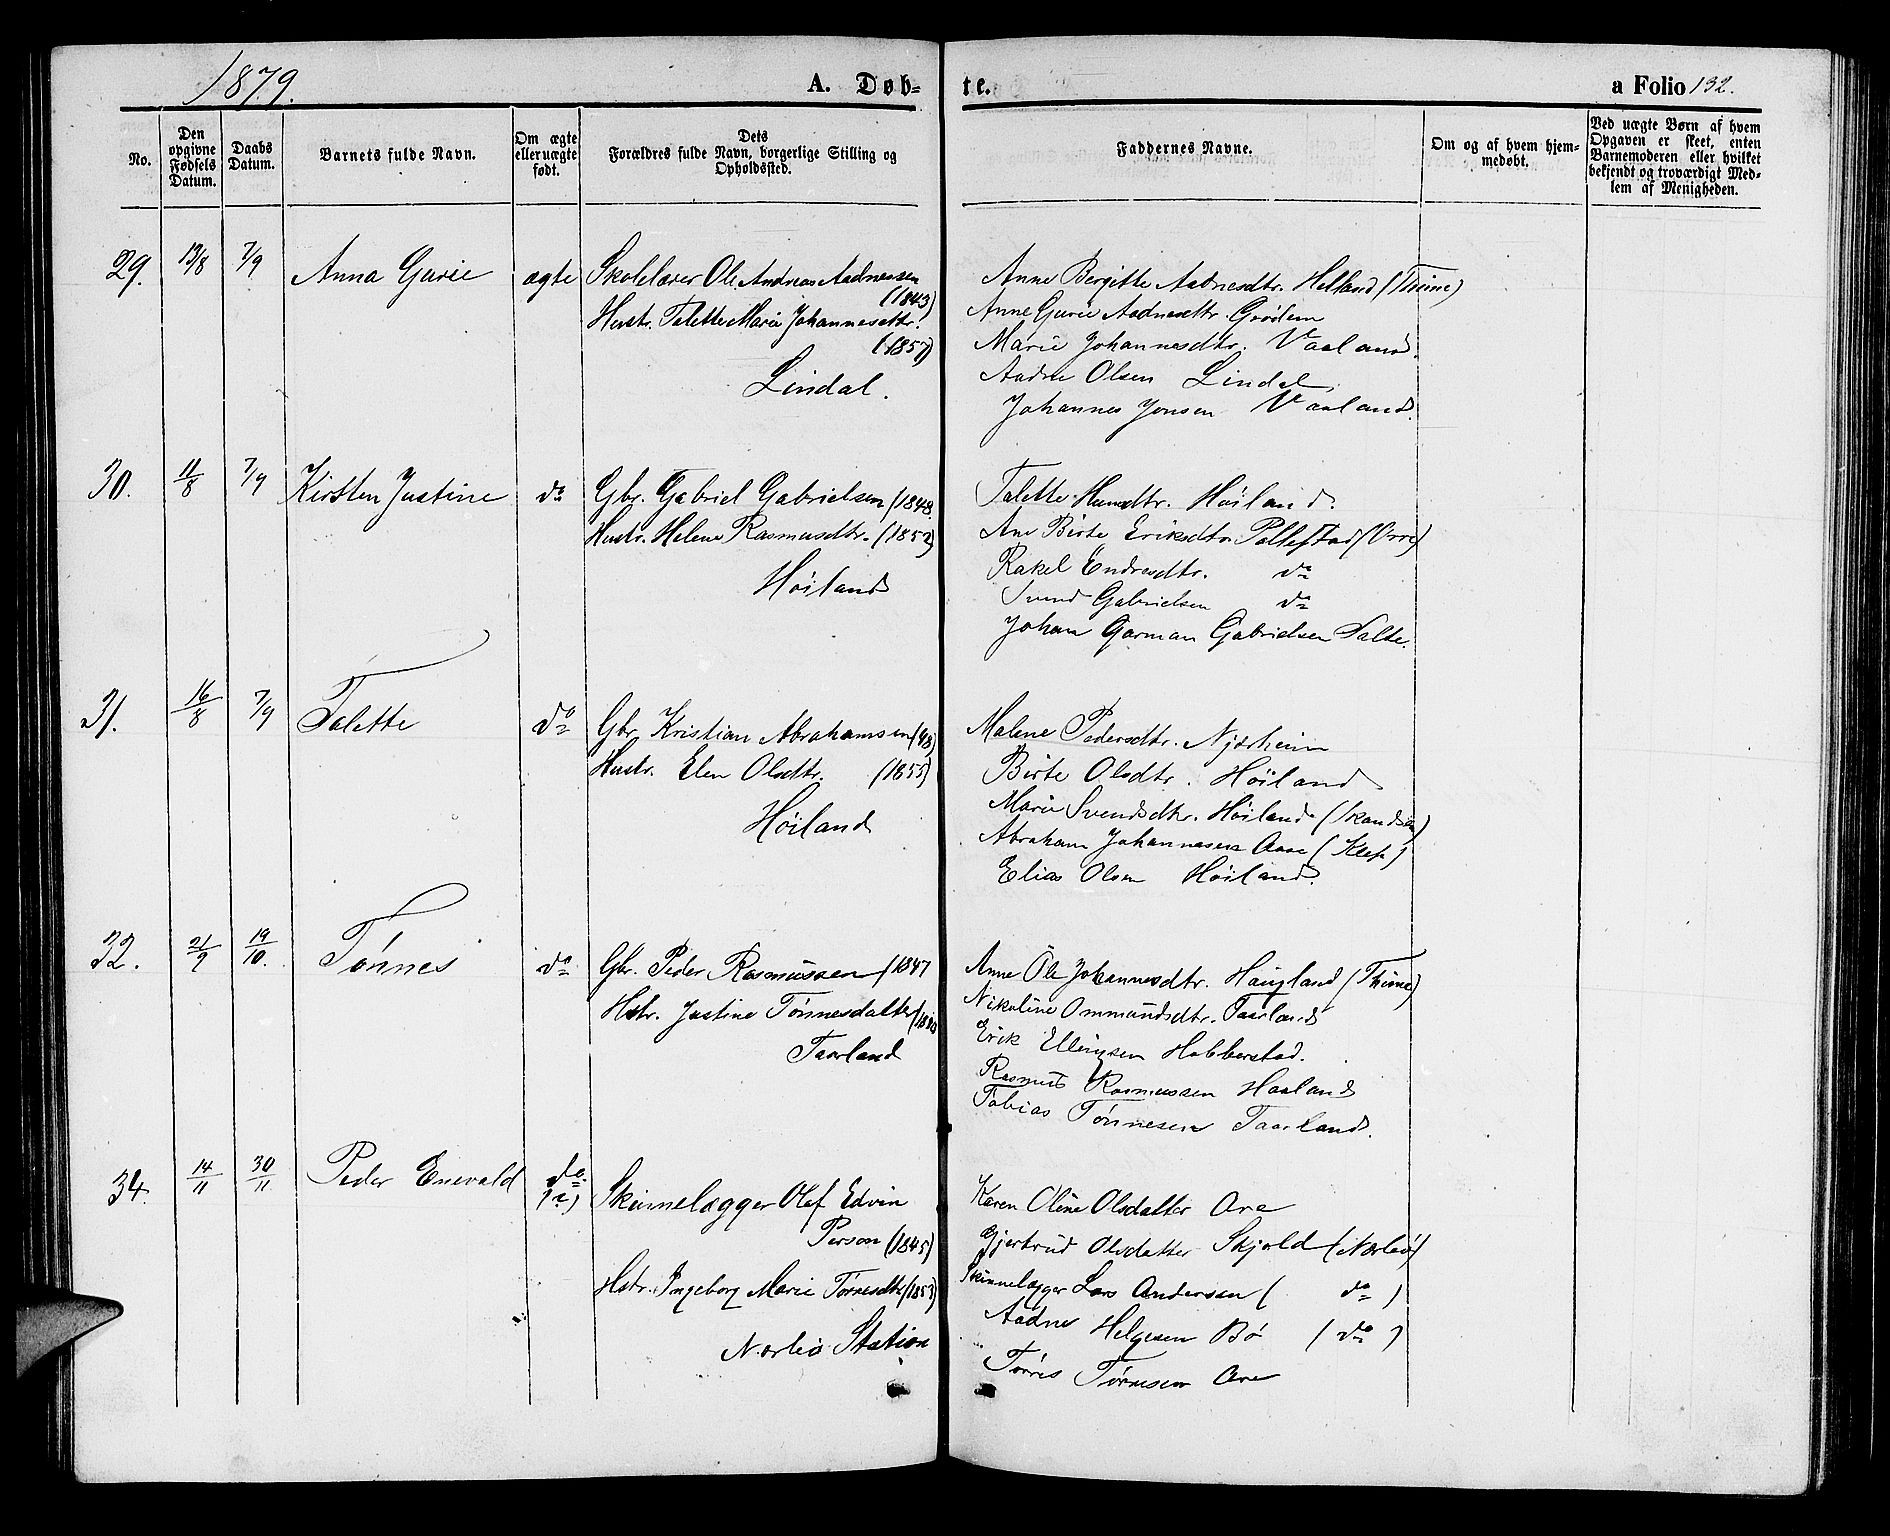 1879.
A. Døb-
te.
a Folio 132.
No.
Den opgivne Fødsels Datum.
Daabs Datum.
Barnets fulde Navn.
Om ægte eller uægte født.
Dets Forældres fulde Navn, borgerlige Stilling og Opholdssted.
Faddernes Navne.
Om og af hvem hjemmedøbt.
Ved uægte Børn af hvem Opgaven er skeet, enten Barnemoderen eller hvilket bekjendt og troværdigt Medlem af Menigheden.
29. 13/8 7/9 Anna Gurie ægte
Skolelærer Ole Andreas Aadnessen
(1843)
Hustr. Talette Marie Johannesdttr.
(1857)
Lindal.
Anne Bergitte Aadnesdtr. Helland (Thime)
Anne Gurie Aadnesdtr. Grødem
Marie Johannesdtr. Vaaland.
Aadne Olsen Lindal.
Johannes Jonsen Vaaland.
30. 11/8 7/9 Kirsten Justine do
Gbr. Gabriel Gabrielsen (1848.
Hustr. Helene Rasmusdtr. (1852)
Höiland
Talette Hansdtr. Höiland.
Ane Birte Eriksdtr Pollestad (Orre)
Rakel Endresdtr. do
Svend Gabrielsen do
Johan Garman Gabrielsen Salte.
31. 16/8 7/9 Talette do
Gbr. Kristian Abrahamsen (48)
Hustr. Elen Olsdtr. (1855)
Höiland
Malene Pedersdtr. Njærheim
Birte Olsdtr. Höiland
Marie Svendsdtr. Höiland (Skandsen)
Abraham Johannesen Aase (Klep)
Elias Olsen Höiland.
32. 21/9 19/10. Tønnes do
Gbr. Peder Rasmussen (1847
Hstr. Justine Tønnesdatter
Taarland
Anne Ole Johannesdtr. Haugland (Thime)
Nikoline Ommundsdtr. Taarland
Erik Ellingsen Hobberstad.
Rasmus Rasmussen Haaland
Tobias Tønnesen Taarland.
34. 14/11 30/11 Peder Enevald do
Skinnelægger Olef Edvin
Person (1845)
Hstr. Ingeborg Marie Tørresdtr (1853)
Nærbø Station
Karen Oline Olsdatter Are
Gjertrud Olsdatter Skjold (Nærbø)
Skinnelægger Lars Andersen ( do )
Aadne Helgesen Bø ( do )
Tørres Tørresen Are